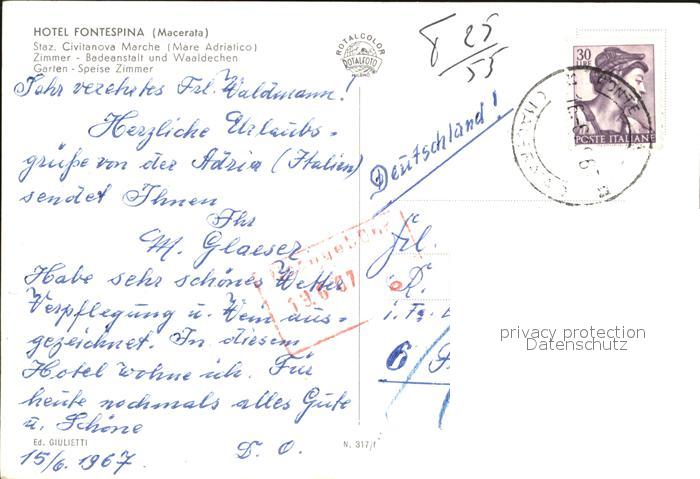 HOTEL FONTESPINA (Macerata)
Staz. Civitanova Marche (Mare Adriatico)
Zimmer - Badeanstalt und Waaldechen
Garten - Speise Zimmer
ROTALCOLOR
ROTALFOTO
MILANO
T 25/55
30
LIRE
POSTE ITALIANE
Sehr verehrtes Frl. Waldmann!
Herzliche Urlaubs-
grüße von der Adria (Italien)
sendet Ihnen
Ihr
M. Glaeser
Habe sehr schönes Wetter
Verpflegung u. Wein aus-
gezeichnet. In diesem
Hotel wohne ich. Für
heute nochmals alles Gute
u. Schöne
D. O.
15/6. 1967.
Ed. GIULIETTI
N. 317/f
Deutschland!
Nachgebühr
19.6.67
Frl.
R.
i. Fa.
6
privacy protection
Datenschutz